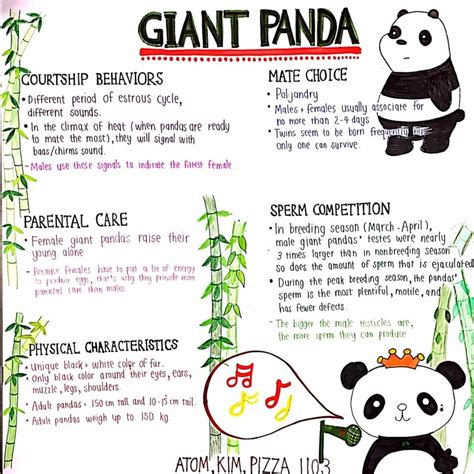 GIANT PANDA
COURTSHIP BEHAVIORS
• Different period of estrous cycle,
different sounds.
• In the climax of heat (when pandas are ready
to mate the most), they will signal with
baas/chirms sound.
• Males use these signals to indicate the fittest female.
MATE CHOICE
• Polyandry
• Males + females usually associate for
no more than 2-4 days
• Twins seem to be born frequently but
only one can survive.
PARENTAL CARE
• Female giant pandas raise their
young alone
• Because females have to put a lot of energy
to produce eggs, that's why they provide more
parental care than males.
SPERM COMPETITION
• In breeding season (March-April),
male giant pandas' testes were nearly
3 times larger than in nonbreeding season
so does the amount of sperm that is ejaculated
• During the peak breeding season, the pandas'
sperm is the most plentiful, motile, and
has fewer defects.
• The bigger the male testicles are,
the more sperm they can produce
PHYSICAL CHARACTERISTICS
• Unique black + white color of fur.
• Only black color around their eyes, ears,
muzzle, legs, shoulders.
• Adult pandas = 150 cm tall and 10-15 cm tail.
• Adult pandas weigh up to 150 kg.
ATOM, KIM, PIZZA 1103